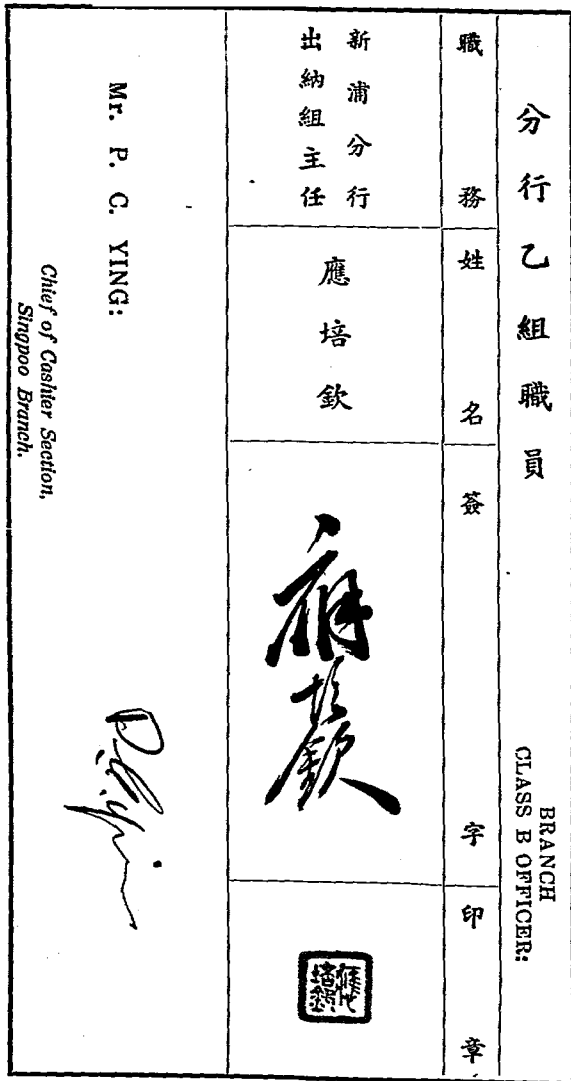 分行乙組職員
BRANCH
CLASS B OFFICER:
職務
姓名
簽字
印章
新浦分行
出納組主任
應培欽
應培欽
Mr. P. C. YING:
Chief of Cashier Section,
Singpoo Branch.
P. C. Ying